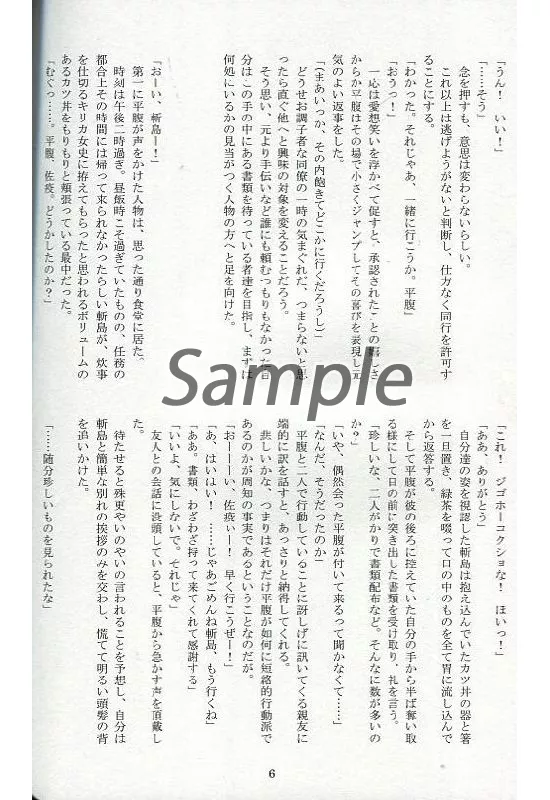 「うん！　いい！」
「……そう」
念を押すも、意思は変わらないらしい。
これ以上は逃げようがないと判断し、仕方なく同行を許可す
ることにする。
「わかった。それじゃあ、一緒に行こうか。平腹」
「おうっ！」
一応は愛想笑いを浮かべて促すと、承認されたことの嬉しさ
からか平腹はその場で小さくジャンプしてその喜びを表現し元
気のよい返事をした。
（（まあいっか、その内飽きてどこかに行くだろうし））
どうせお調子者な同僚の一時の気まぐれだ、つまらないと思
ったら直ぐ他へと興味の対象を変えることだろう。
そう思い、元より手伝いなど誰にも頼むつもりもなかった自
分はこの手の中にある書類を待っている者達を目指し、まずは
何処にいるかの見当がつく人物の方へと足を向けた。
「おーい、斬島ー！」
第一に平腹が声をかけた人物は、思った通り食堂に居た。
時刻は午後二時過ぎ。昼飯時こそ過ぎていたものの、任務の
都合上その時間には帰って来られなかったらしい斬島が、炊事
を仕切るキリカ女史に拵えてもらったと思われるボリュームの
あるカツ丼をもりもりと頬張っている最中だった。
「むぐっ……。平腹、佐疫。どうかしたのか？」
「これ！　ジゴホーコクショな！　ほいっ！」
「ああ、ありがとう」
自分達の姿を視認した斬島は抱え込んでいたカツ丼の器と箸
を一旦置き、緑茶を啜って口の中のものを全て胃に流し込んで
から返答する。
そして平腹が彼の後ろに控えていた自分の手から半ば奪い取
る様にして目の前に突き出した書類を受け取り、礼を言う。
「珍しいな、二人がかりで書類配布など。そんなに数が多いの
か？」
「いや、偶然会った平腹が付いて来るって聞かなくて……」
「なんだ、そうだったのか」
平腹と二人で行動していることに訝しげに訊いてくる親友に
端的に訳を話すと、あっさりと納得してくれる。
悲しいかな、つまりはそれだけ平腹が如何に短絡的行動派で
あるのかが周知の事実であるということなのだが。
「おーーーい、佐疫ぃー！　早く行こうぜー！」
「あ、はいはい！　……じゃあごめんね斬島、もう行くね」
「ああ。書類、わざわざ持って来てくれて感謝する」
「いいよ、気にしないで。それじゃ」
友人との会話に没頭していると、平腹から急かす声を頂戴し
た。
待たせると殊更やいのやいの言われることを予想し、自分は
斬島と簡単な別れの挨拶のみを交わし、慌てて明るい頭髪の背
を追いかけた。
「……随分珍しいものを見られたな」
Sample
6